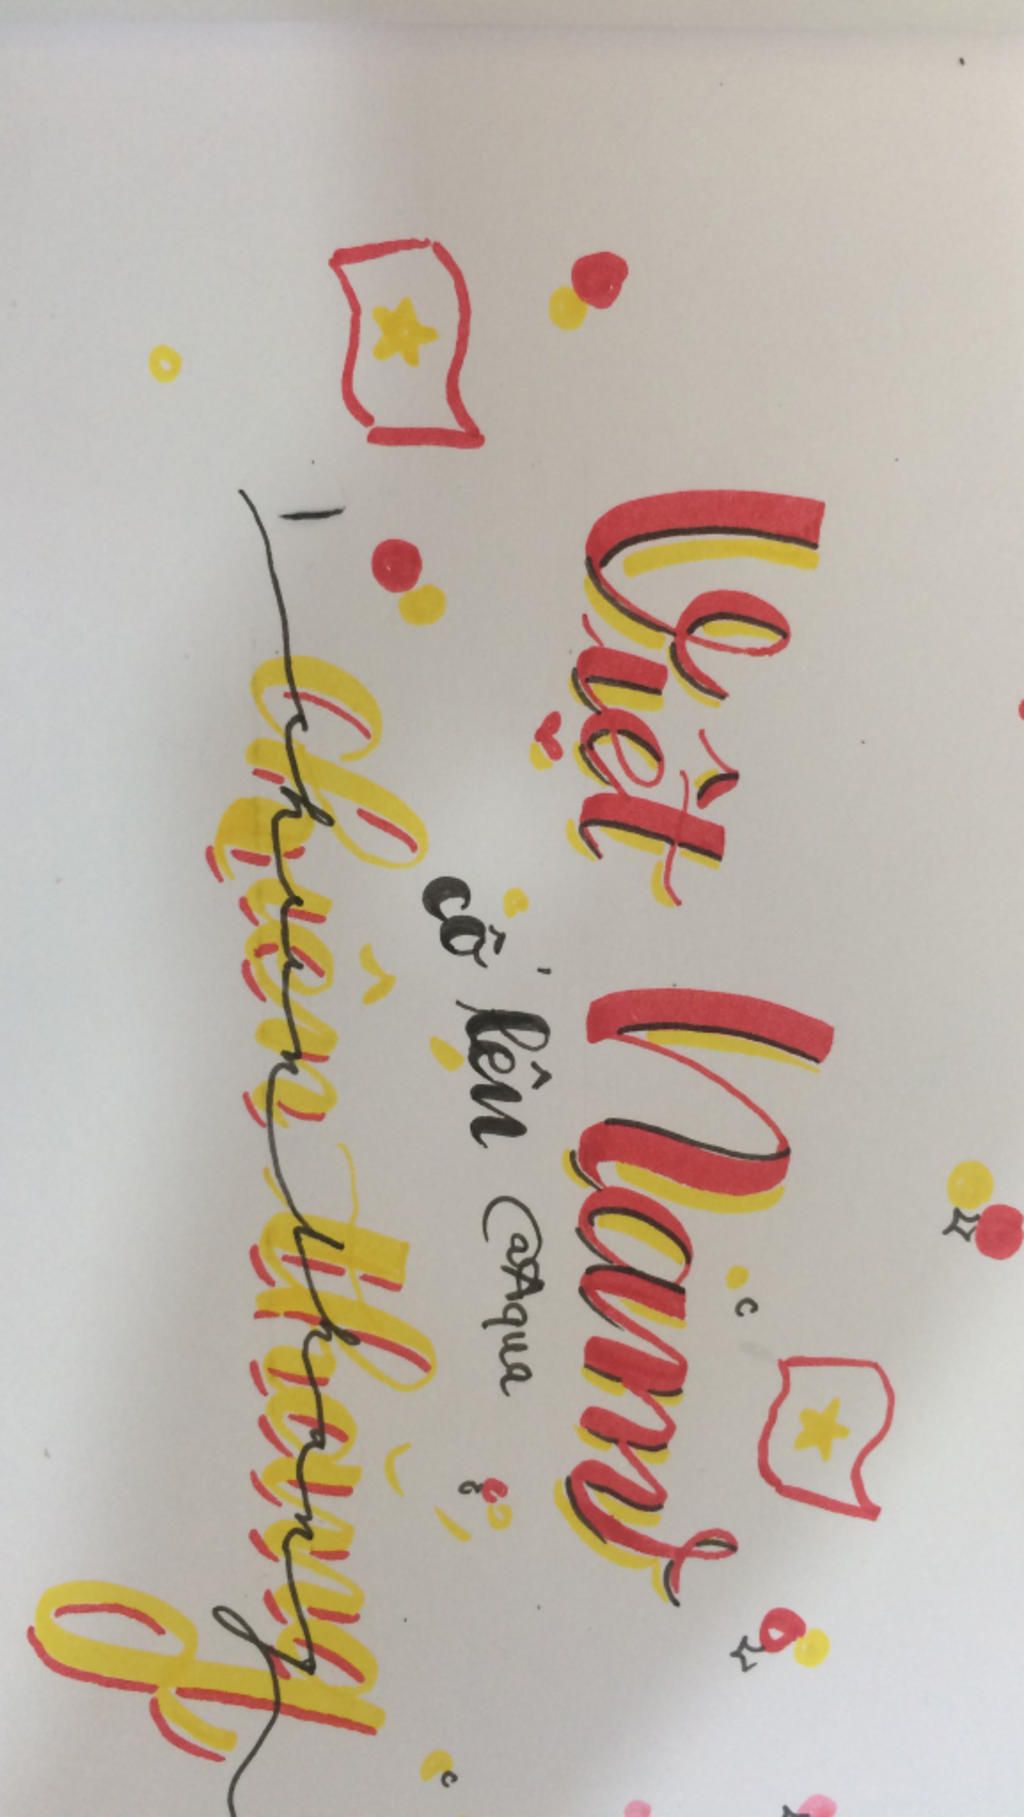 Việt Nam
cố lên @Aqua
chiến thắng